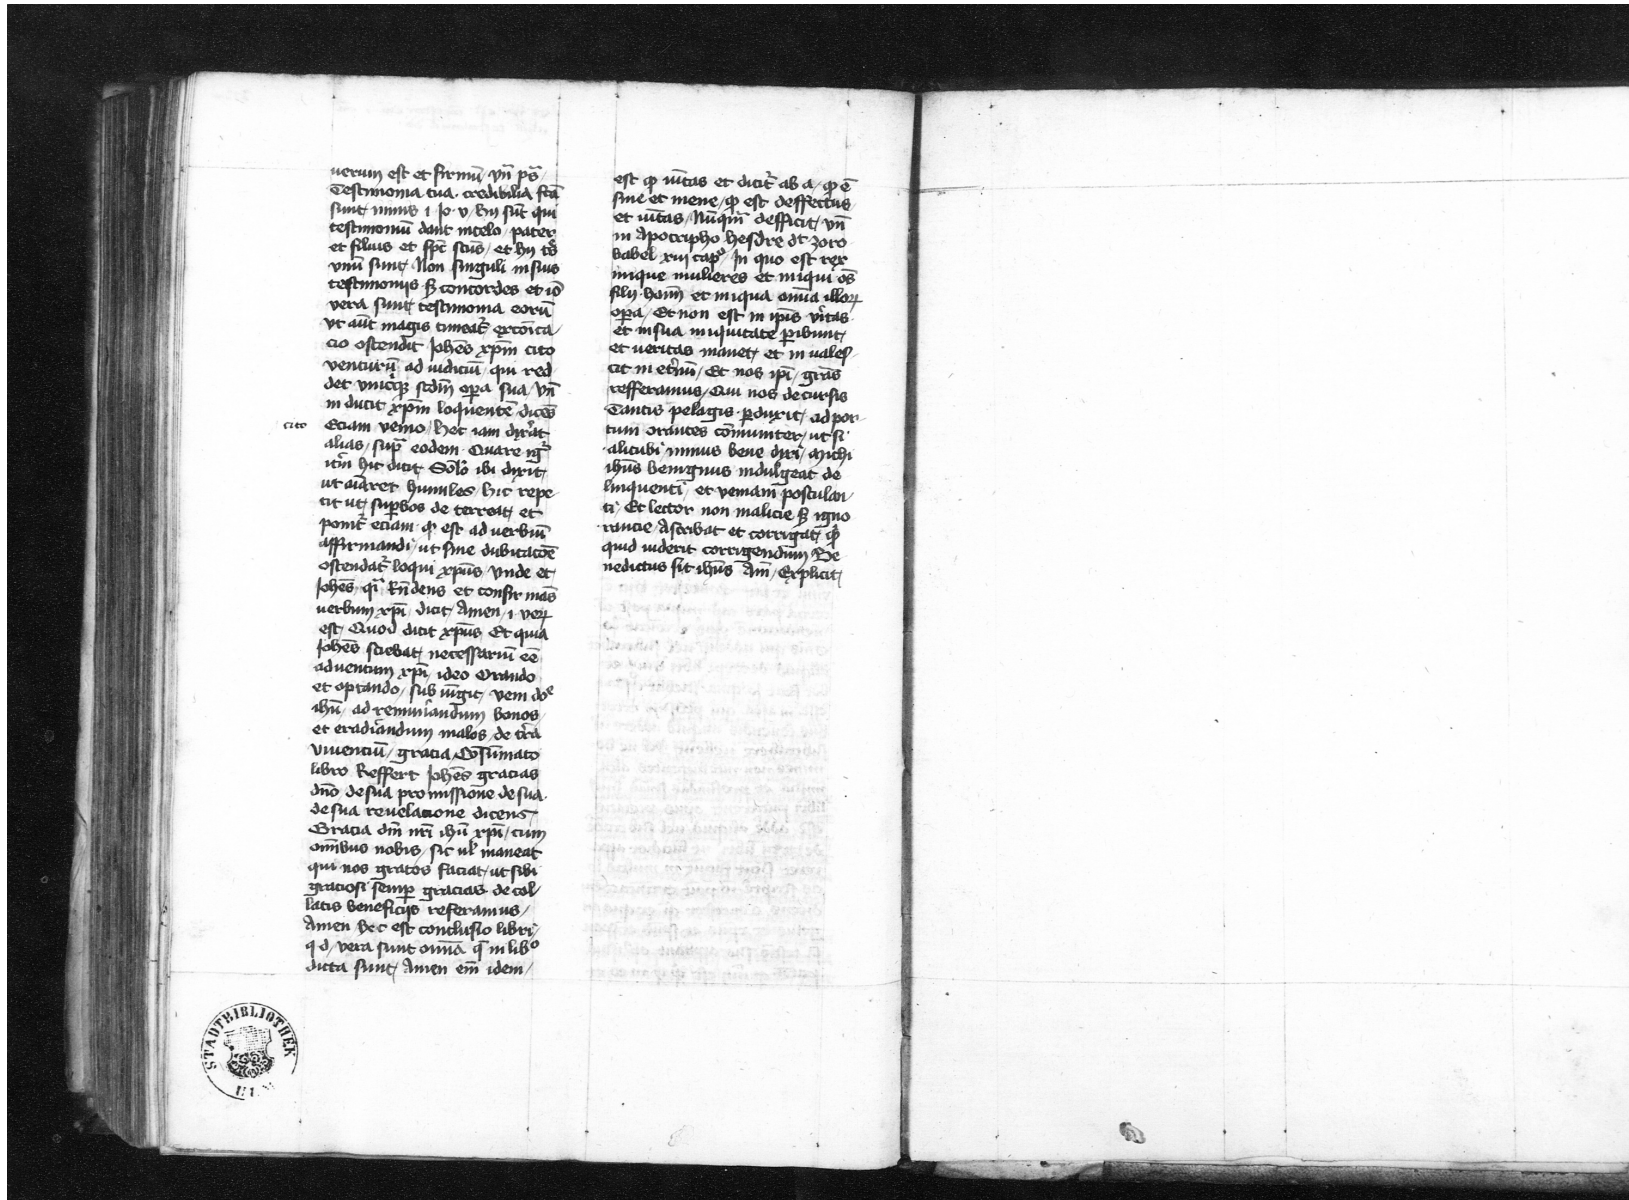 verum est et firmū / vn̄ ps̄ /
Testimonia tua · credibilia fcā
sunt nimis i Jo v / hij sūt qui
testimoniū dant in celo / pater
et filius et sp̄c scūs / et hij
vnū sunt / Non singuli in suis
testimonijs s concordes et iō
vera sunt testimonia eorū
vt aūt magis timeat᷑ excōica /
cio ostendit Johēs xp̄m cito
venturū ad iudiciū / qui red
det vnicuiqꝫ scdm opa sua / vn̄
in ducit xp̄m loquentē dicēs
cito
Eciam venio / hec iam dixerat
alias / supͣ eodem · Quare
hic dicit ibi dixit
ut humiles / hic repe /
tit ut supbos de terreat / et
ponit᷑ eciam · ꝙ est ad verbiū
affirmandi / ut sine dubitacōe
ostendat᷑ loqui xp̄us / vnde et
Johēs · qͣ Rn̄dens et confir mās
verbum xp̄i dicit / Amen / i veꝝ
est / Quod dicit xp̄us / Et quia
Johēs sciebat necessariū eē
aduentum xp̄i ideo Orando
et optando / sub iūgit / veni doͤ
ihū / ad remuͥandum bonos /
et eradiandum malos / de tr̄a
viuentiū / gracia Cōsūmato
libro Reffert Johēs gracias
dn̄o de sua promissione de sua ·
de sua reuelacione dicens /
Gracia dn̄i nr̄i ihū xp̄i / cum
omībus nobis / sic maneat
qui nos gratos faciat / ut sibi
graciosi semp gracias · de col /
latis beneficijs referamus /
Amen hec est conclusio libri /
q d / vera sunt omīa q̄ in libͦ
dicta sunt / Amen em̄ idem /
est ꝙ uͥtas et dicit᷑ ab a / ꝙ ē
sine et mene / ꝙ est deffectus /
et uͥtas / Nūqͣm defficit / vn̄
in Apocripho hesdre dt zoro
babel xiij capͦ / In quo est rex
inique mulieres et iniqui oēs
filij hoīm et iniqua omīa illoꝝ
opa / Et non est in ip̄is vͥtas ·
et in sua iniquitate pibunt /
et veritas manet / et in vales /
cit in et̄nū / Et nos ip̄i / grās
refferamus / Qui nos decursis
Tantis pelagis · pduxit / ad por /
tum orantes cōmuniter / ut si
alicubi / minus bene dixi / Michi
ihūs benignus indulgeat de
linquenti / et veniam postulan /
ti / Et lector non malicie s igno
rancie / Ascribat et corrigat /
quid viderit corrigendum / Be
nedictus sit ihūs Am̄ / Explicit /
STADTBIBLIOTHEK